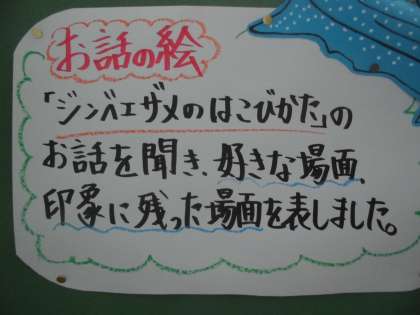 お話の絵
「ジンベエザメのはこびかた」の
お話を聞き、好きな場面、
印象に残った場面を表しました。